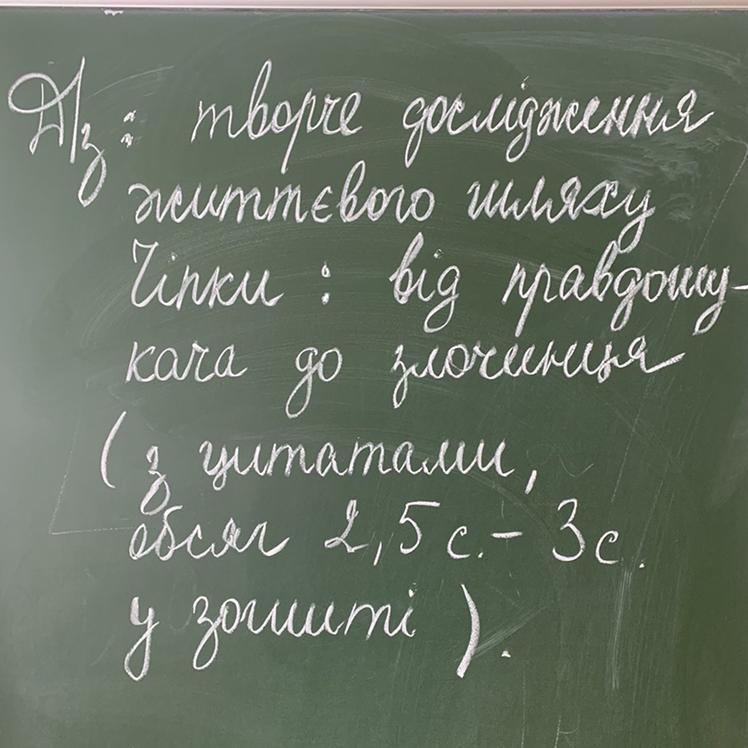 Д/з: творче дослідження
життєвого шляху
Чіпки: від правдошу-
кача до злочинця
(з цитатами,
обсяг 2,5 с. – 3 с.
у зошиті).